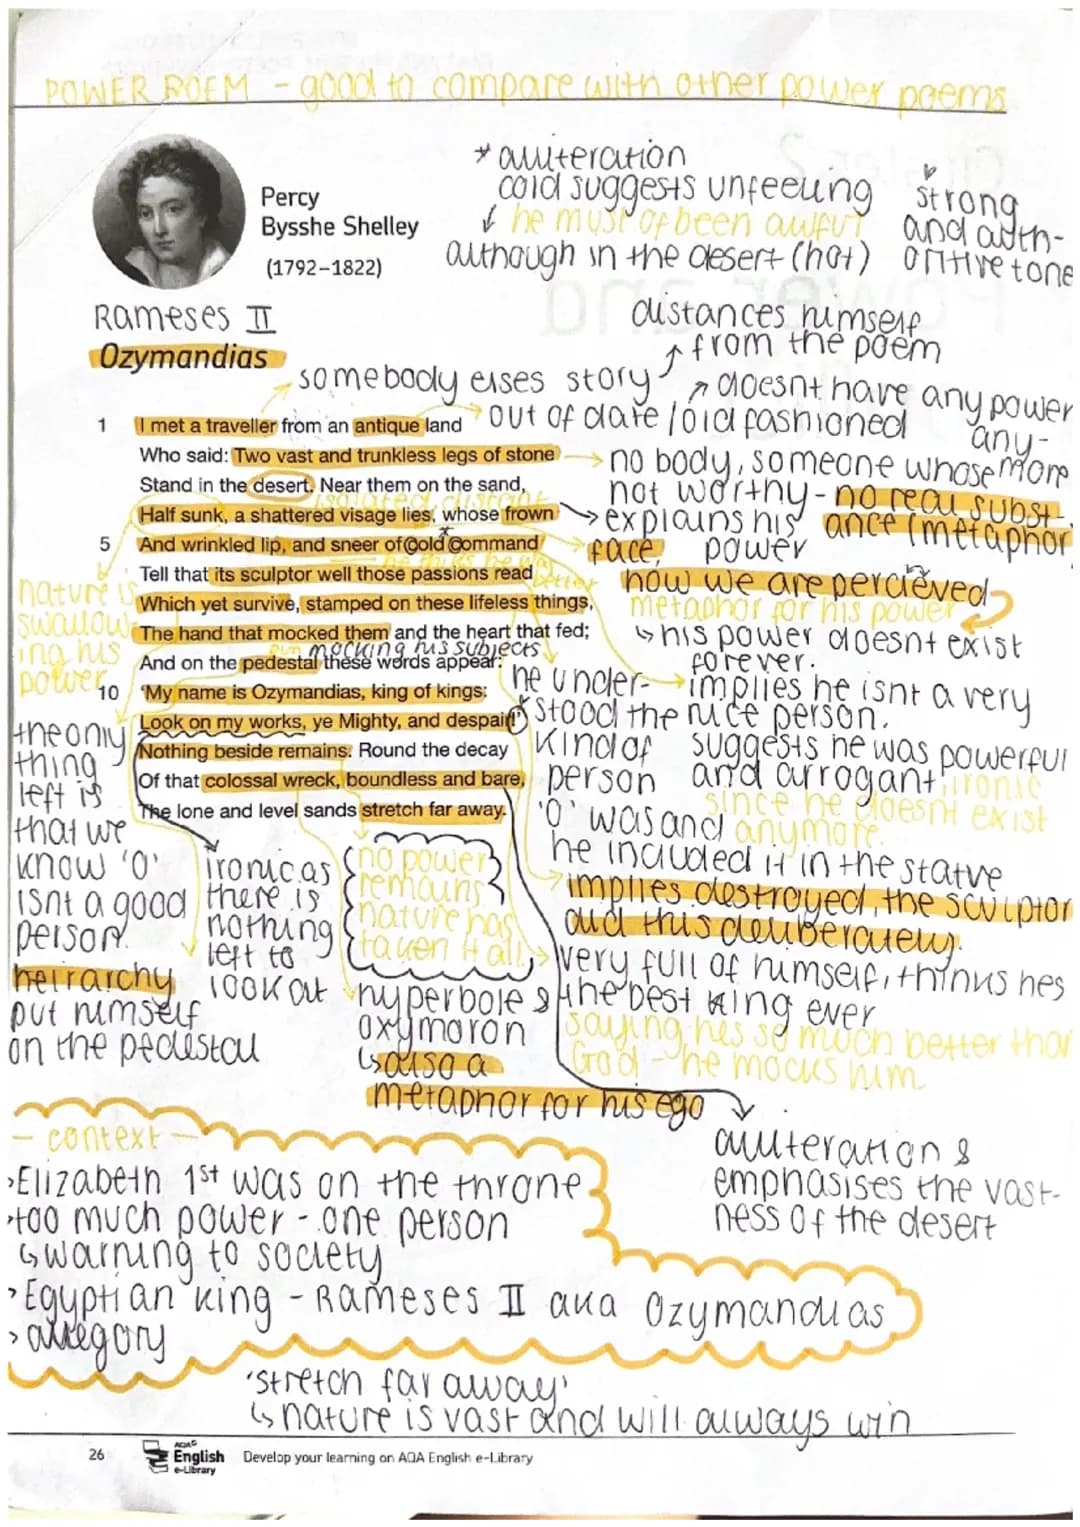 POWER POEM - good to compare with other power poems
* alliteration
cold suggests unfeeling
he must of been awful
although in the desert (hot)
strong
and auth-
oritive tone
Percy
Bysshe Shelley
(1792–1822)
Rameses II
Ozymandias
distances himself
from the poem
somebody elses story
doesnt have any power
any-
more
out of date / old fashioned
1 I met a traveller from an antique land
Who said: Two vast and trunkless legs of stone
Stand in the desert. Near them on the sand,
isolated, distant
Half sunk, a shattered visage lies, whose frown
5 And wrinkled lip, and sneer of cold command
Tell that its sculptor well those passions read
Which yet survive, stamped on these lifeless things,
The hand that mocked them and the heart that fed;
mocking his subjects
And on the pedestal these words appear:
10 'My name is Ozymandias, king of kings:
Look on my works, ye Mighty, and despair!'
Nothing beside remains. Round the decay
Of that colossal wreck, boundless and bare,
The lone and level sands stretch far away.
no body, someone whose
not worthy - no real subst-
ance (metaphor
explains his
power
face,
how we are percieved
metaphor for his power
his power doesnt exist
forever.
implies he isnt a very
nice person.
suggests he was powerful
and arrogant, ironic
since he doesnt exist
anymore.
he under-
stood the
kind of
person
'O' was and
he included it in the statue
implies destroyed, the sculptor
did this deliberately.
very full of himself, thinks hes
the best king ever
saying hes so much better than
God - he mocks him
nature is
swallow-
ing his
power
the only
thing
left is
that we
know 'O'
isnt a good
person.
heirarchy
put himself
on the pedestal
ironic as
there is
nothing
left to
look at
no power
remains
nature has
taken it all
hyperbole &
oxymoron
also a
metaphor for his ego
alliteration &
emphasises the vast-
ness of the desert
- context -
>Elizabeth 1st was on the throne
>too much power - one person
warning to society
>Egyptian king - Rameses II aka Ozymandias
>allegory
'stretch far away'
nature is vast and will always win
26
AQA
English
e-Library
Develop your learning on AQA English e-Library